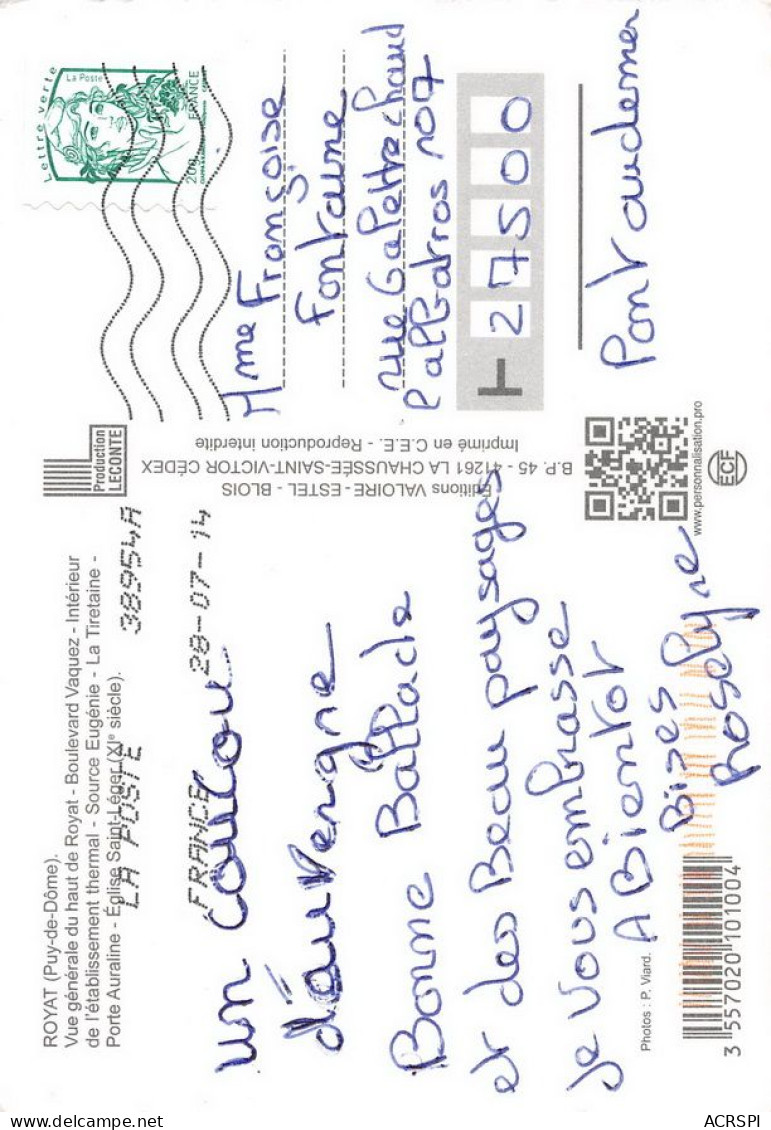 ROYAT (Puy-de-Dôme).
Vue générale du haut de Royat - Boulevard Vaquez - Intérieur
de l'établissement thermal - Source Eugénie - La Tiretaine -
Porte Auraline - Église Saint-Léger (XIe siècle).
LA POSTE 38954A
FRANCE 28-07-14
un coucou
d'auvergne
Bonne Ballade
et des Beau paysages
je vous embrasse
A Bientot
Bises
Roselyne
Photos : P. Viard.
3 557020 101004
Production
LECONTE
Éditions VALOIRE - ESTEL - BLOIS
B.P. 45 - 41261 LA CHAUSSÉE-SAINT-VICTOR CÉDEX
Imprimé en C.E.E. - Reproduction interdite
www.personnalisation.pro
ECF
Lettre verte
La Poste
20g
FRANCE
Mme Françoise
Fontaine
l'albatros 107
27500
Pont audemer
ACRSPI